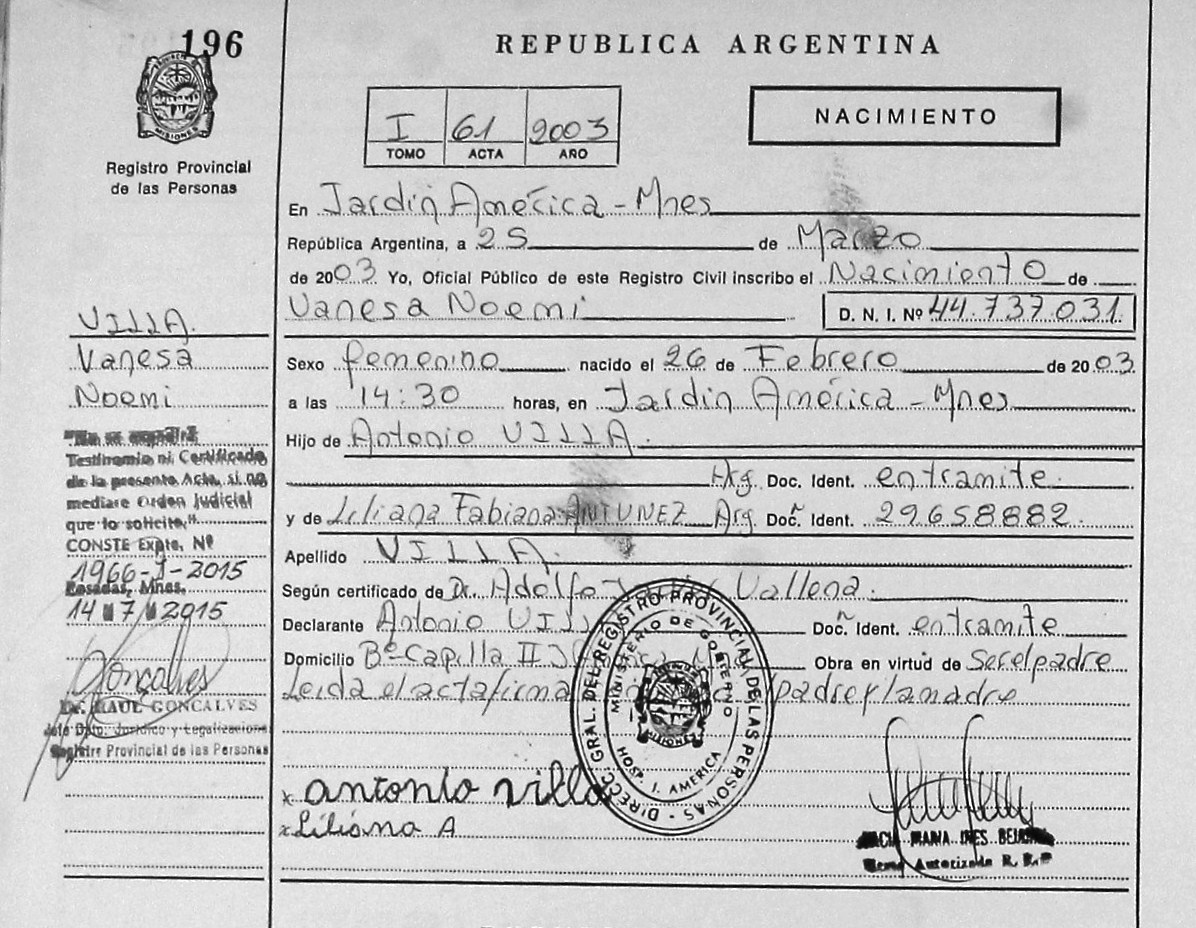 196
REPUBLICA ARGENTINA
PROVINCIA DE MISIONES
Registro Provincial
de las Personas
I 61 2003
TOMO ACTA AÑO
NACIMIENTO
En Jardin América - Mnes
República Argentina, a 25 de Marzo
de 2003 Yo, Oficial Público de este Registro Civil inscribo el Nacimiento de
Vanesa Noemi D. N. I. Nº 44.737.031.
Sexo femenino nacido el 26 de Febrero de 2003.
a las 14:30 horas, en Jardin América - Mnes
Hijo de Antonio VILLA.
Arg. Doc. Ident. entramite.
y de Liliana Fabiana ANTUNEZ Arg. Doc. Ident. 29658882.
Apellido VILLA.
Según certificado de Dr. Adolfo Vallena.
Declarante Antonio Doc. Ident. entramite
Domicilio Bº Capilla II Obra en virtud de Serelpadre
Leida el acta firma padre y la madre
antonio villa
x Liliana A
DIRECC. GRAL. DEL REGISTRO PROVINCIAL DE LAS PERSONAS
MINISTERIO DE GOBIERNO
MISIONES
HOSP. J. AMERICA
MARIA INES
Autorizada R. P.
VILLA.
Vanesa
Noemi
"No se expedirá
Testimonio ni Certificado
de la presente Acta, si no
mediare Orden Judicial
que lo solicite."
CONSTE Expte. Nº
1966-J-2015
Posadas, Mnes.
14 7 2015
Goncalves
Dr. RAUL GONCALVES
Jefe Dpto. Jurídico y Legalizaciones
Registro Provincial de las Personas